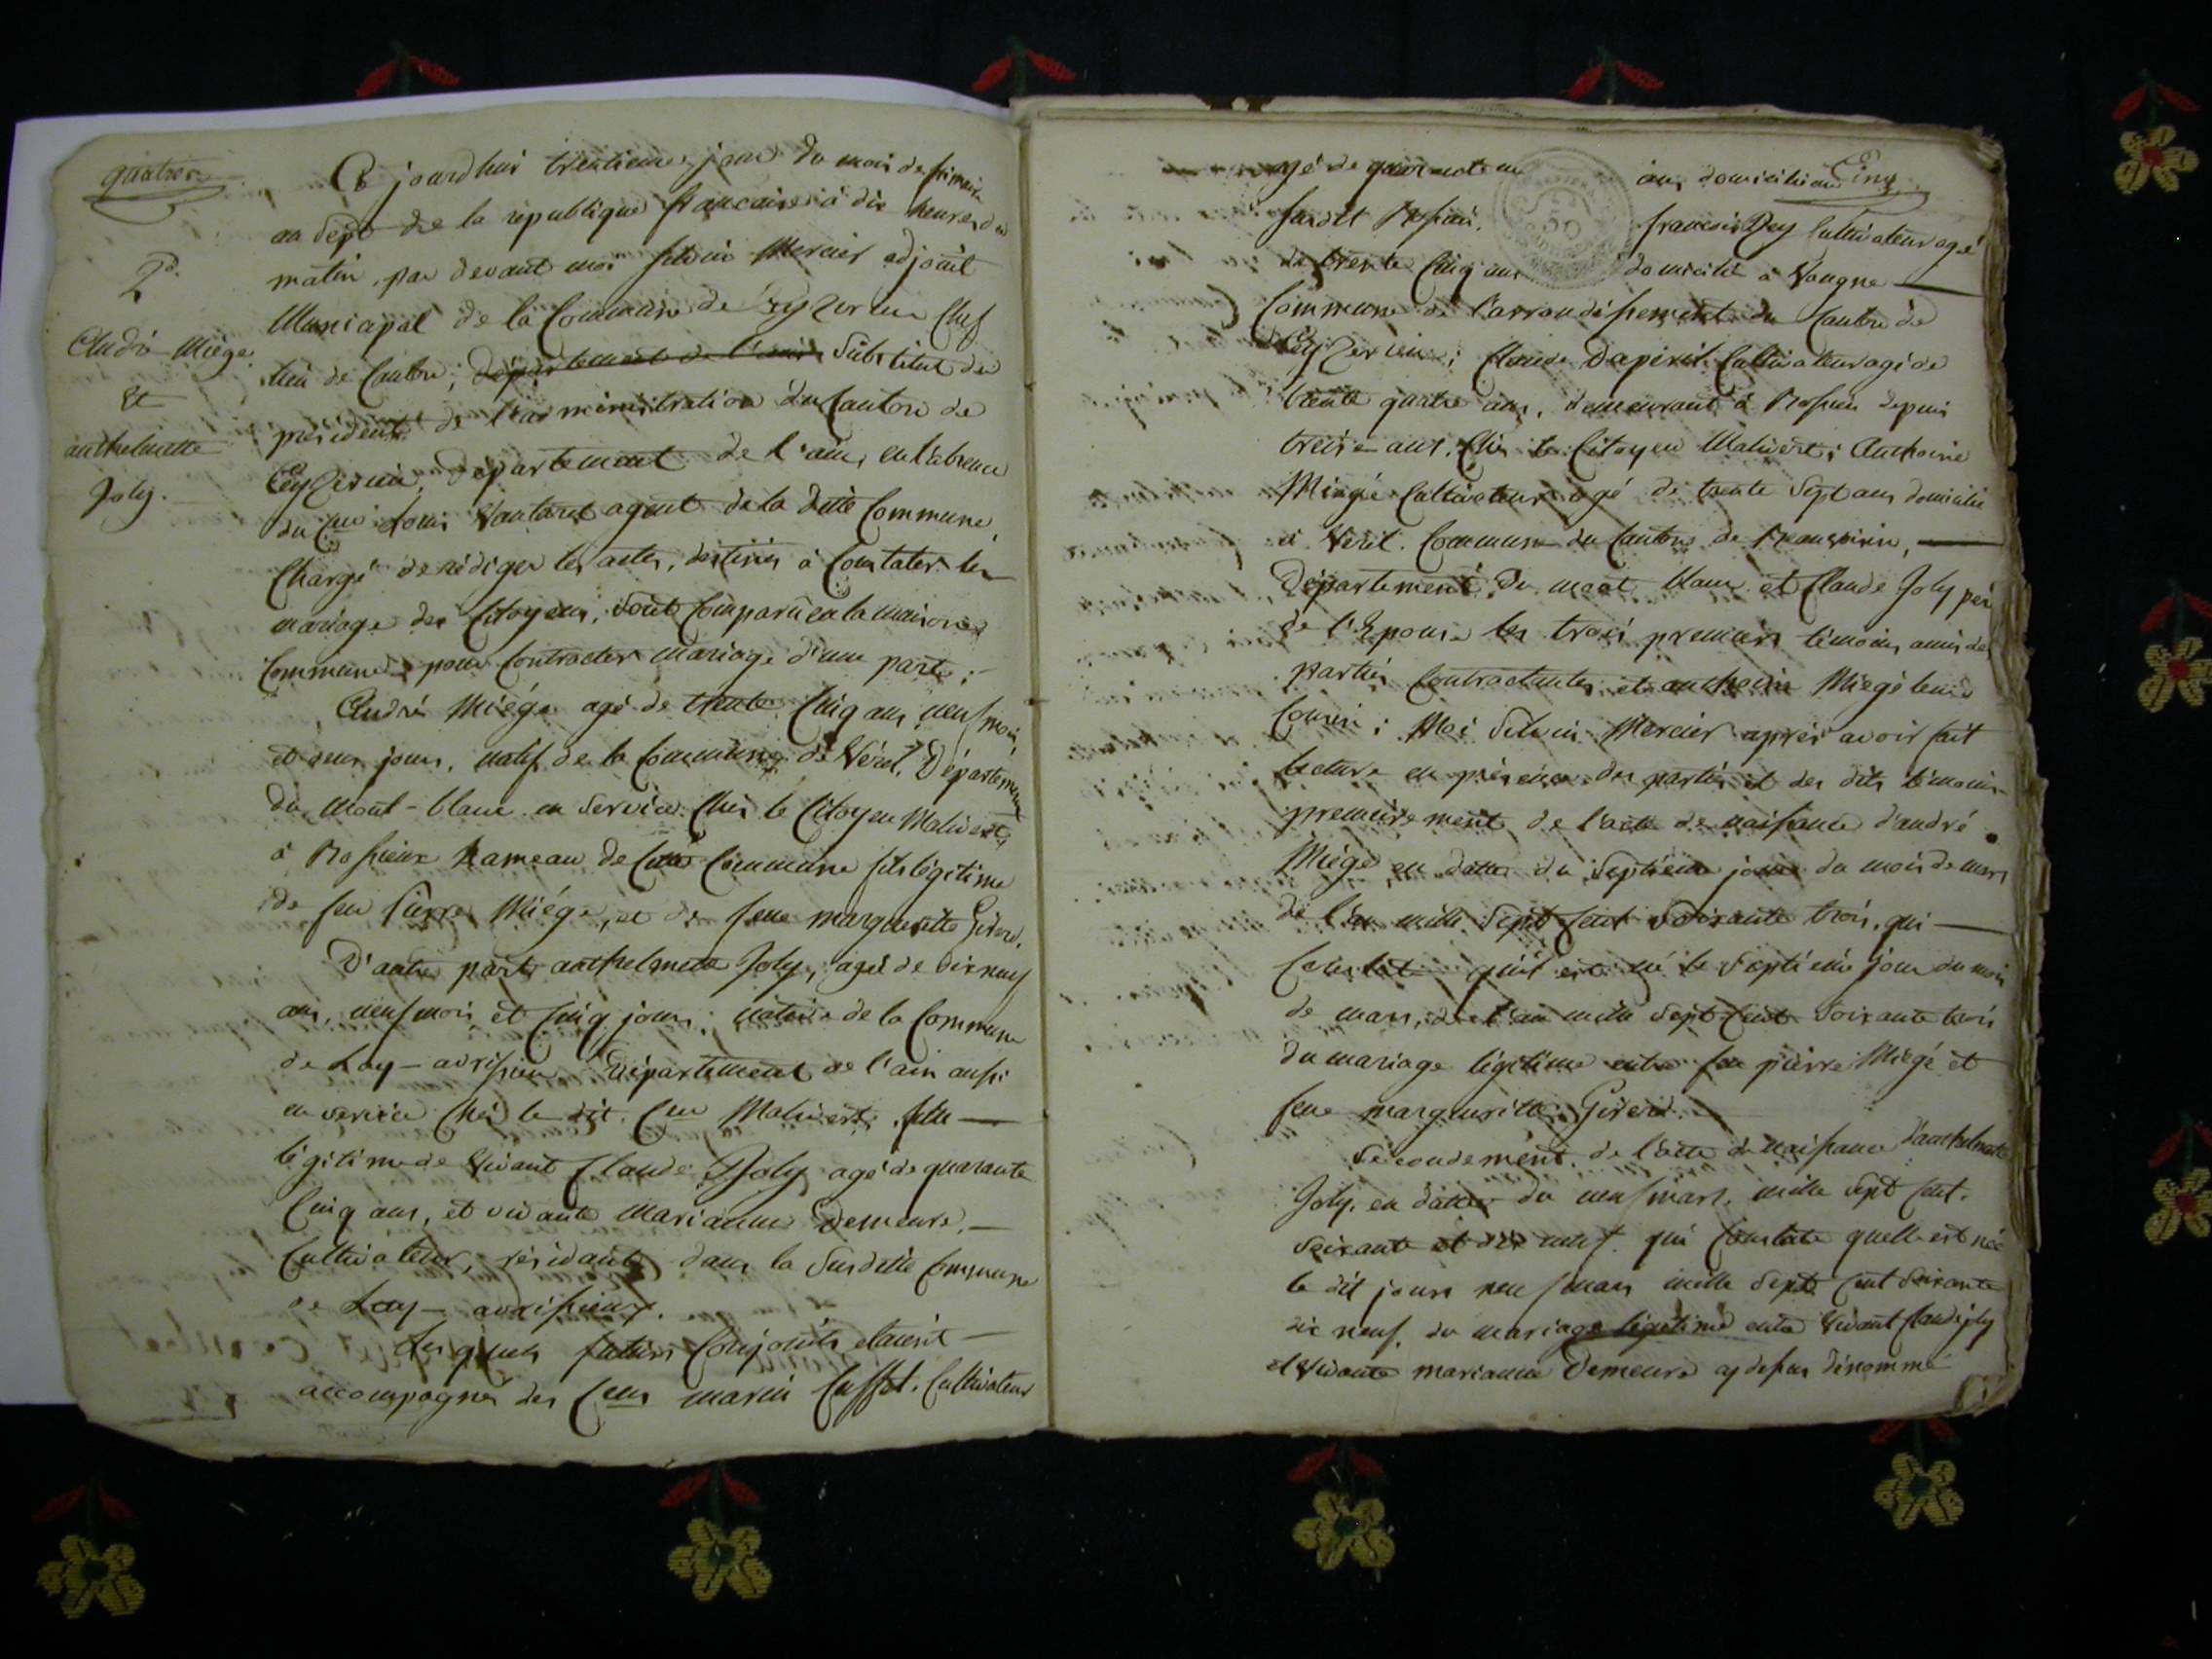 quatre
2d.
André Miège
Et
anthelmette
Joly.
Ce jourdhui trentieme jour du mois de frimaire
an Sept de la republique francaise à dix heures du
matin, par devant moi Silvin Mercier adjoint
Municipal de la Commune de Ceyzerieu Chef
lieu de Canton; Département de l'ain Substitut du
président de l'administration du Canton de
Ceyzerieu, Département de l'ain, en l'absence
du Cen Louis Vautaret agent de la ditte Commune
Chargé de rédiger les actes, destinés à Constater les
mariage des Citoyens, sont Comparu en la maison
Commune pour Contracter mariage d'une part;
André Miége agé de trente Cinq ans neuf mois
et jours, natif de la Commune de Vérel, Département
du Mont-blanc en Service Chés le Citoyen Malivert,
à Rossieux hameau de Commune fils légitime
de feu Pierre Miége, et de feue margueritte Girerd.
D'autre part anthelmette Joly, agée de dix neuf
ans, neuf mois et Cinq jours, native de la Commune
de Lay-avrissieu Département de l'ain aussi
en service chés le dit Cen Malivert, fille
légitime de Vivant Claude Joly agé de quarante
Cinq ans, et vivante Marianne Demeure,
Cultivateur, résidants dans la Susditte Commune
de Lay-avrissieux.
Lesquels futurs Conjoints étaient
accompagnés des Cens marin Cultivateur
agé de quarante un ans, domicilié au Cinq
susdit Rossieu, francois Dey Cultivateur agé
de trente Cinq ans domicilié à Vongne
Commune de l'arrondissement du Canton de
Ceyzerieu; Claude Dapirit Cultivateur agé de
trente quatre ans, demeurant à Rossieu depuis
treize ans, Chés le Citoyen Malivert; Anthoine
Miégé Cultivateur agé de trente Sept ans domicilié
à Verel Commune du Canton de
Département du mont blanc et Claude Joly père
de l'Epouse les trois premiers témoins amis des
Parties Contractantes et anthoine Miegé leur
Cousin; Moi Silvin Mercier aprés avoir fait
lecture en présence des parties et des dits témoins
premierement de l'acte de naissance d'andré
Miége en datte du Septieme jour du mois de mars
de l'an mille Sept Cent Soixante trois, qui
Constate qu'il est né le Septiéme jour du mois
de mars, de l'an mille Sept Cent Soixante trois
du mariage légitime entre feu pierre Miégé et
feue margueritte Girerd.
Secondement de l'acte de naissance d'anthelmette
Joly, en datte du neuf mars mille Sept Cent
Soixante et dix neuf qui Constate quelle est née
le dit jours neuf mars mille Sept Cent Soixante
dix neuf, du mariage légitime entre Vivant Claude joly
et Vivante marianne Demeure cy dessus dénommé